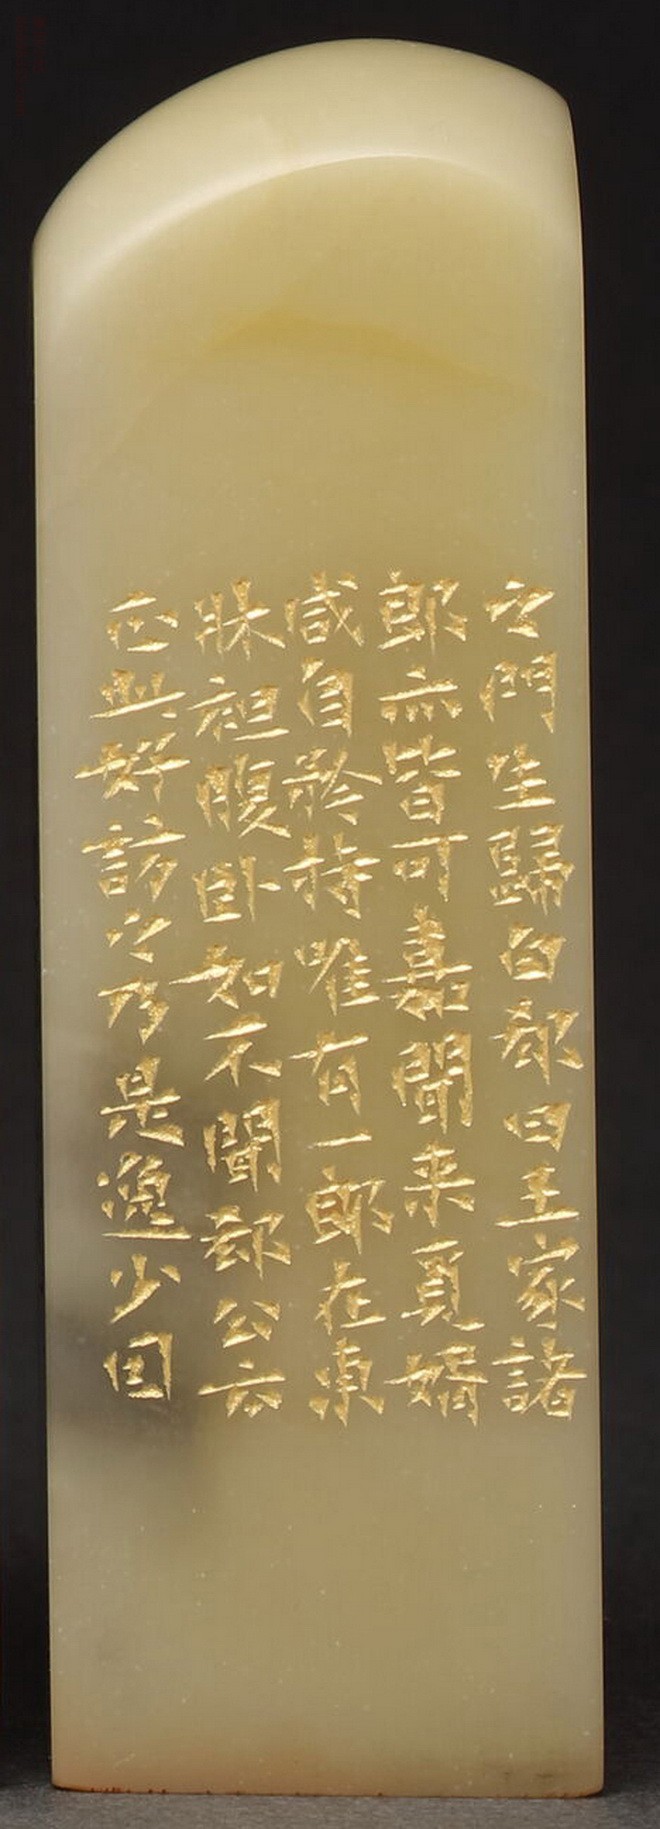 之門生歸白郗曰王家諸
郎亦皆可嘉聞来覓婿
咸自矜持唯有一郎在東
牀袒腹卧如不聞郗公云
正此好訪之乃是逸少因